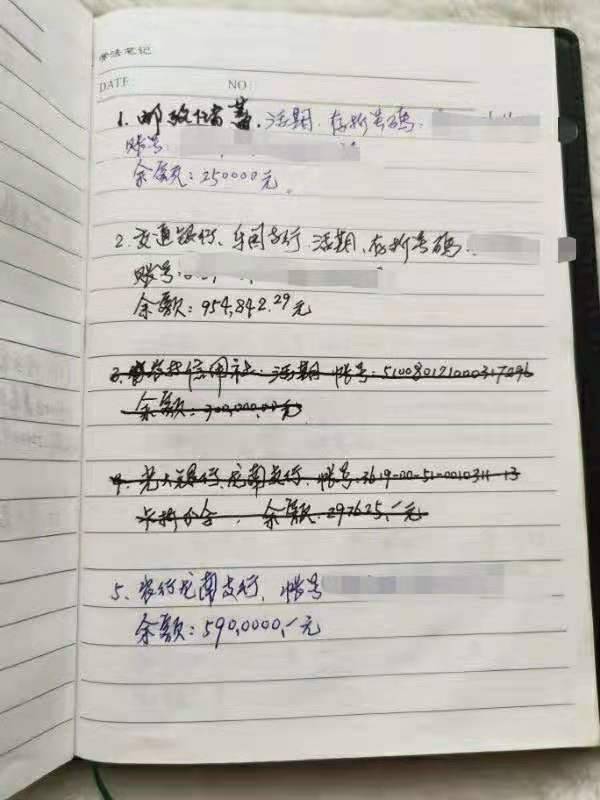 学法笔记
DATE NO
1. 邮政储蓄.活期.存折号码:
账号:
余额:250000元.
2.交通银行、车闸支行.活期.存折号码:
账号:
余额:954,842.29元
信用社.活期 帐号:510080121000317296
余额:300,000,00元
4.光大银行,龙南支行.帐号:3619-00-51-0010311-13
卡折合全. 余额:297625.一元
5.农行龙南支行, 帐号
余额:590,0000,一元